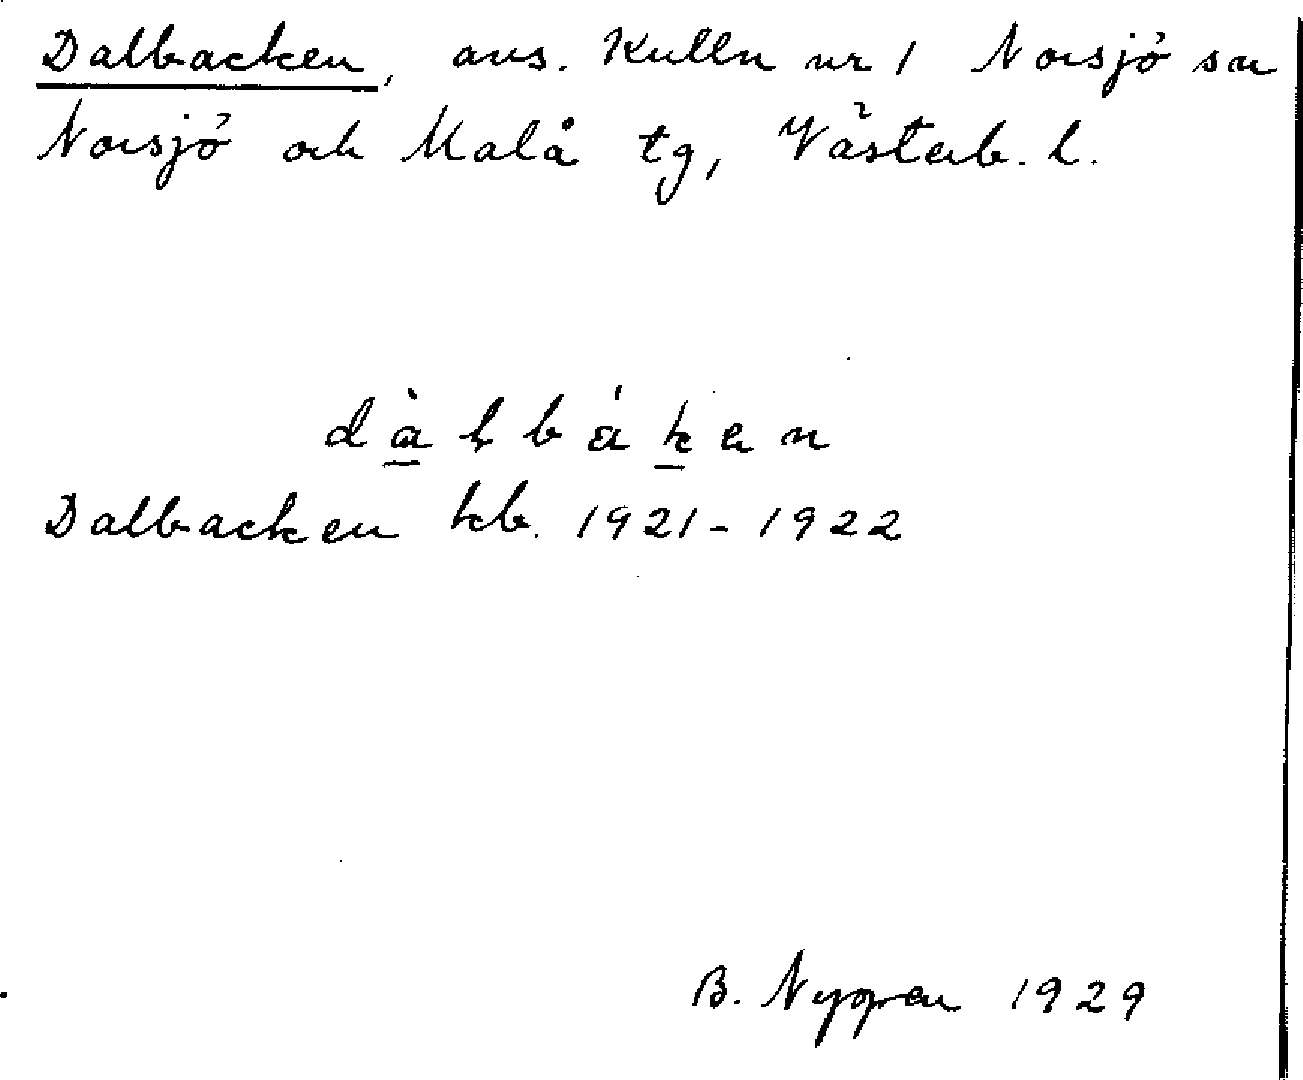 Dalbacken, avs. Kulln nr 1 Norsjö sn
Norsjö och Malå tg, Västerb. l.
dà̱lbáḵen
Dalbacken kb. 1921-1922
B. 1929